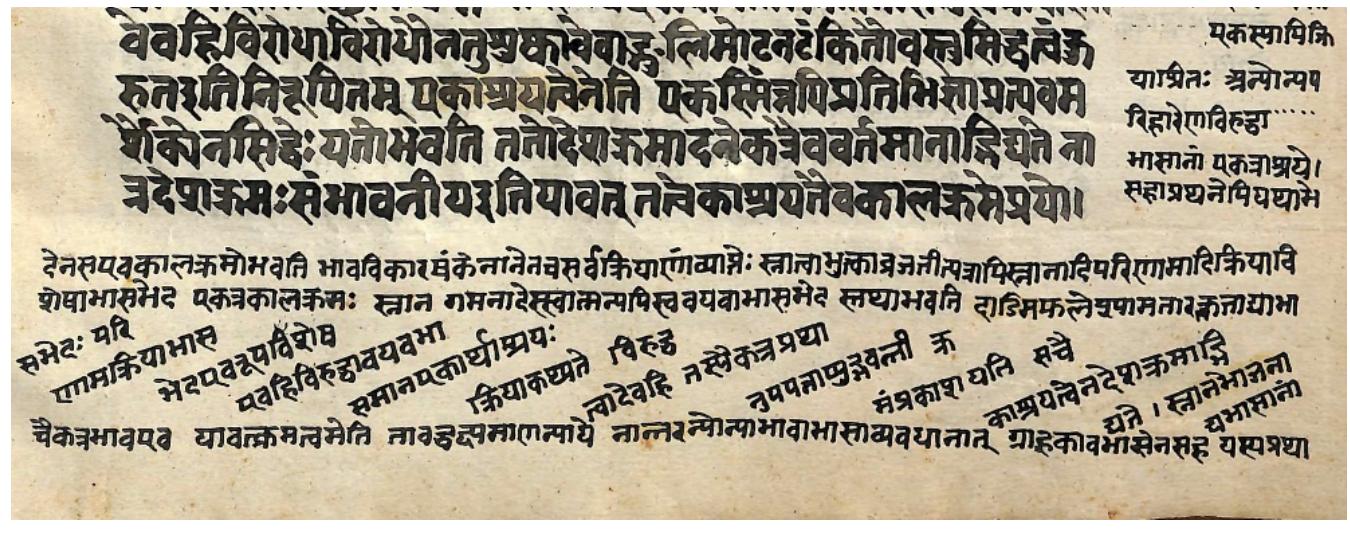 वेवहिविरोधाविरोधौनतुशुष्कावेवाङ्गुलिमोटनटंकितौवस्तुसिद्धत्वंऊ
रुतइतिनिरूपितम् एकाश्रयत्वेनेति एकस्मिन्नपिप्रतिभिज्ञाप्रत्यवम
र्शैक्येनसिद्धेः यतोभवति ततोदेशक्रमादनेकत्रैववर्तमानाद्भिद्यते ना
त्रदेशक्रमःसंभावनीयइतियावत् तत्वेकाश्रयतैवकालक्रमेप्रयो।
एकस्यापिक्रि
याश्रितः अन्योन्यप
रिहारेणविरुद्धा
भासानां एकत्राश्रये।
सहाप्रथनेपियथाभे
देनसएवकालक्रमोभवति भावविकारषंकेनानेनचसर्वक्रियाणांव्याप्तेः स्नात्वाभुक्त्वाव्रजतीत्यत्रापिस्नानादिपरिणामादिक्रियावि
शेषाभासभेद एकत्रकालक्रमः स्नान गमनादेस्स्वात्मन्यपिस्ववयवाभासभेद स्तथाभवति दाडिमफलेश्यामतारक्तताद्याभा
सभेदः यदि
णामक्रियाभास
भेदएवरूपविशेष
एवहिविरुद्धावयवभा
समानएकार्थाश्रयः
क्रियाकथ्यते विरुद्ध
त्वादेवहि नस्यैकत्रप्रथा
नुपपन्नाप्युद्भवन्ती क्र
मंप्रकाश यति सचै
काश्रयत्वेनदेशक्रमाद्भि
द्यते । स्नानभोजना
द्यभासानां
चैकत्रभावएव यावत्क्रमत्वमेति तावद्रुह्यमाणान्याये नान्तरन्योन्याभावाभासाव्यवधानात् ग्राहकावभासेनसह यस्यप्रथा